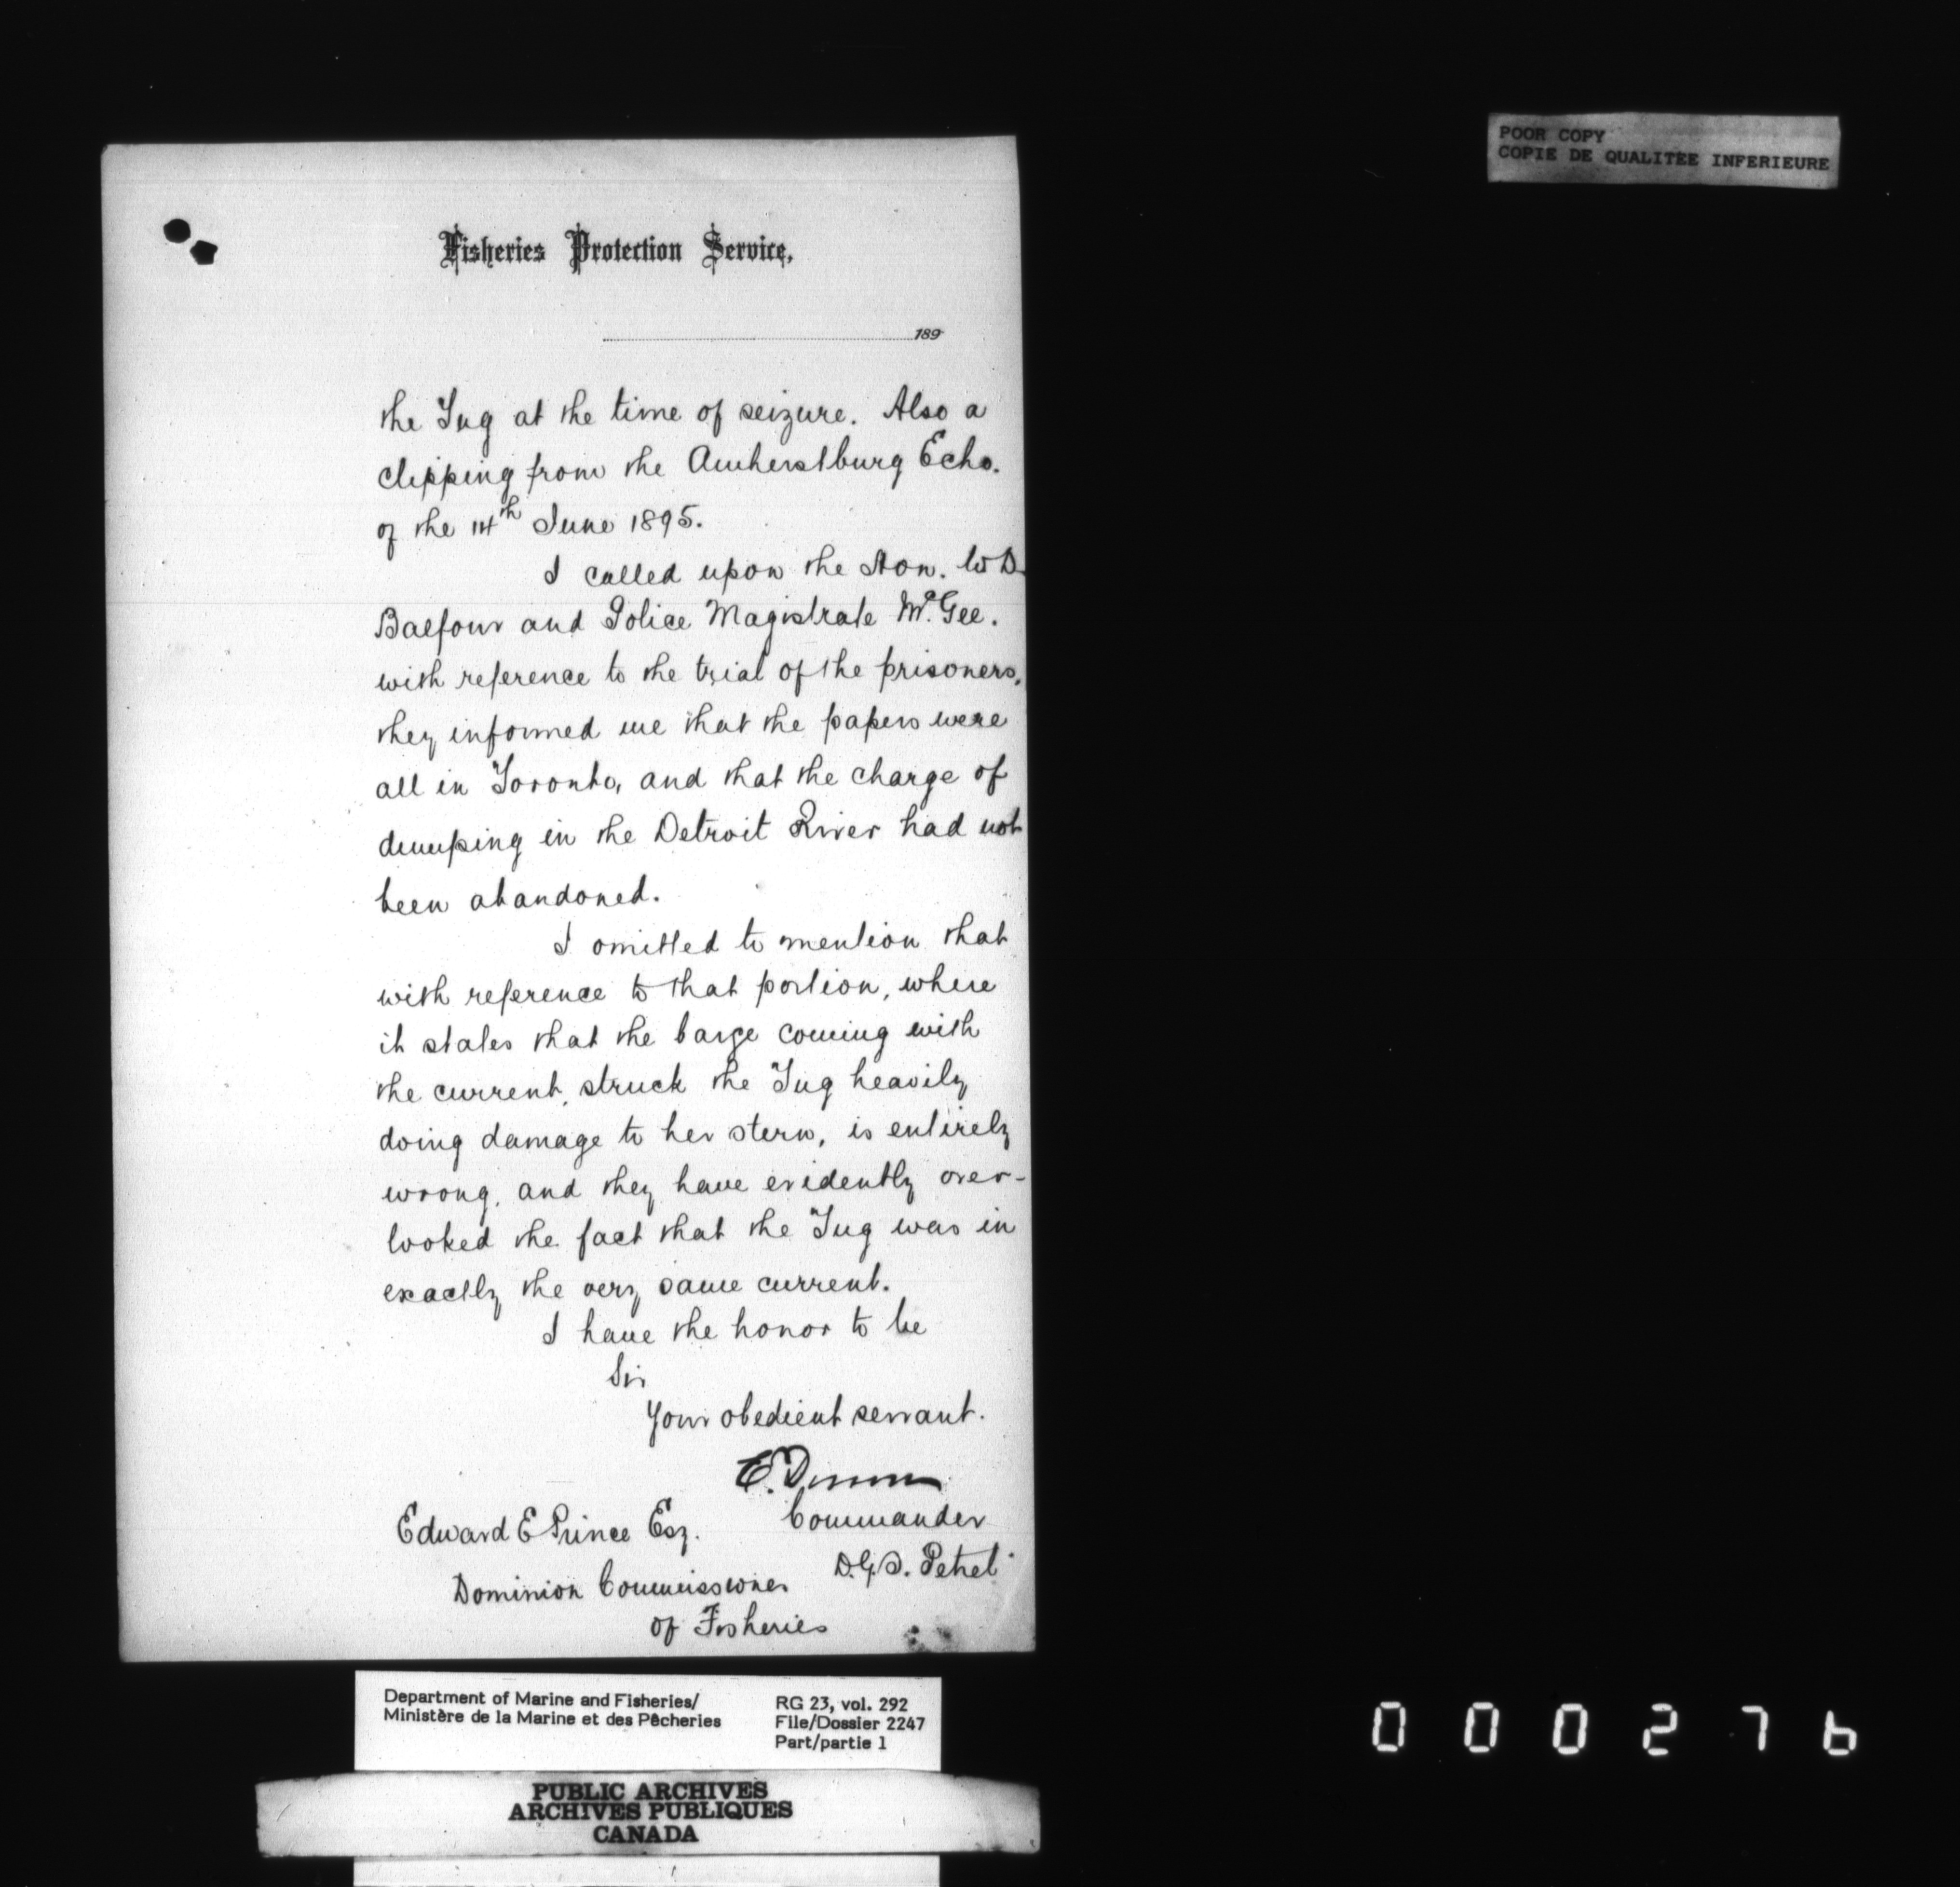 POOR COPY
COPIE DE QUALITEE INFERIEURE
Fisheries Protection Service,
189
the Tug at the time of seizure. Also a
clipping from the Amherstburg Echo.
of the 14th June 1895.
I called upon the Hon. W D
Balfour and Police Magistrate McGee.
with reference to the trial of the prisoners,
they informed me that the papers were
all in Toronto, and that the charge of
dumping in the Detroit River had not
been abandoned.
I omitted to mention that
with reference to that portion, where
it states that the barge coming with
the current, struck the Tug heavily
doing damage to her stern, is entirely
wrong, and they have evidently over-
looked the fact that the Tug was in
exactly the very same current.
I have the honor to be
Sir
Your obedient servant.
E. Dunn
Commander
D.G.S. Petrel
Edward E Prince Esq.
Dominion Commissioner
of Fisheries
Department of Marine and Fisheries/
Ministère de la Marine et des Pêcheries
RG 23, vol. 292
File/Dossier 2247
Part/partie 1
PUBLIC ARCHIVES
ARCHIVES PUBLIQUES
CANADA
000276